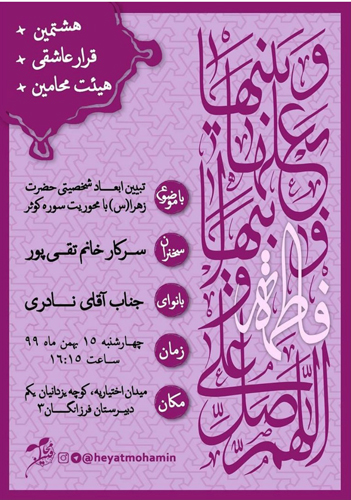 + هشتمین
+ قرار عاشقی
+ هیئت محامین
اللهم صل علی فاطمة و ابیها و بعلها و بنیها
با موضوع
تبیین ابعاد شخصیتی حضرت
زهرا(س) با محوریت سوره کوثر
سخنران
سرکار خانم تقی پور
بانوای
جناب آقای نادری
زمان
چهارشنبه ۱۵ بهمن ماه ۹۹
ساعت ۱۶:۱۵
مکان
میدان اختیاریه، کوچه یزدانیان یکم
دبیرستان فرزانگان۳
@heyatmohamin